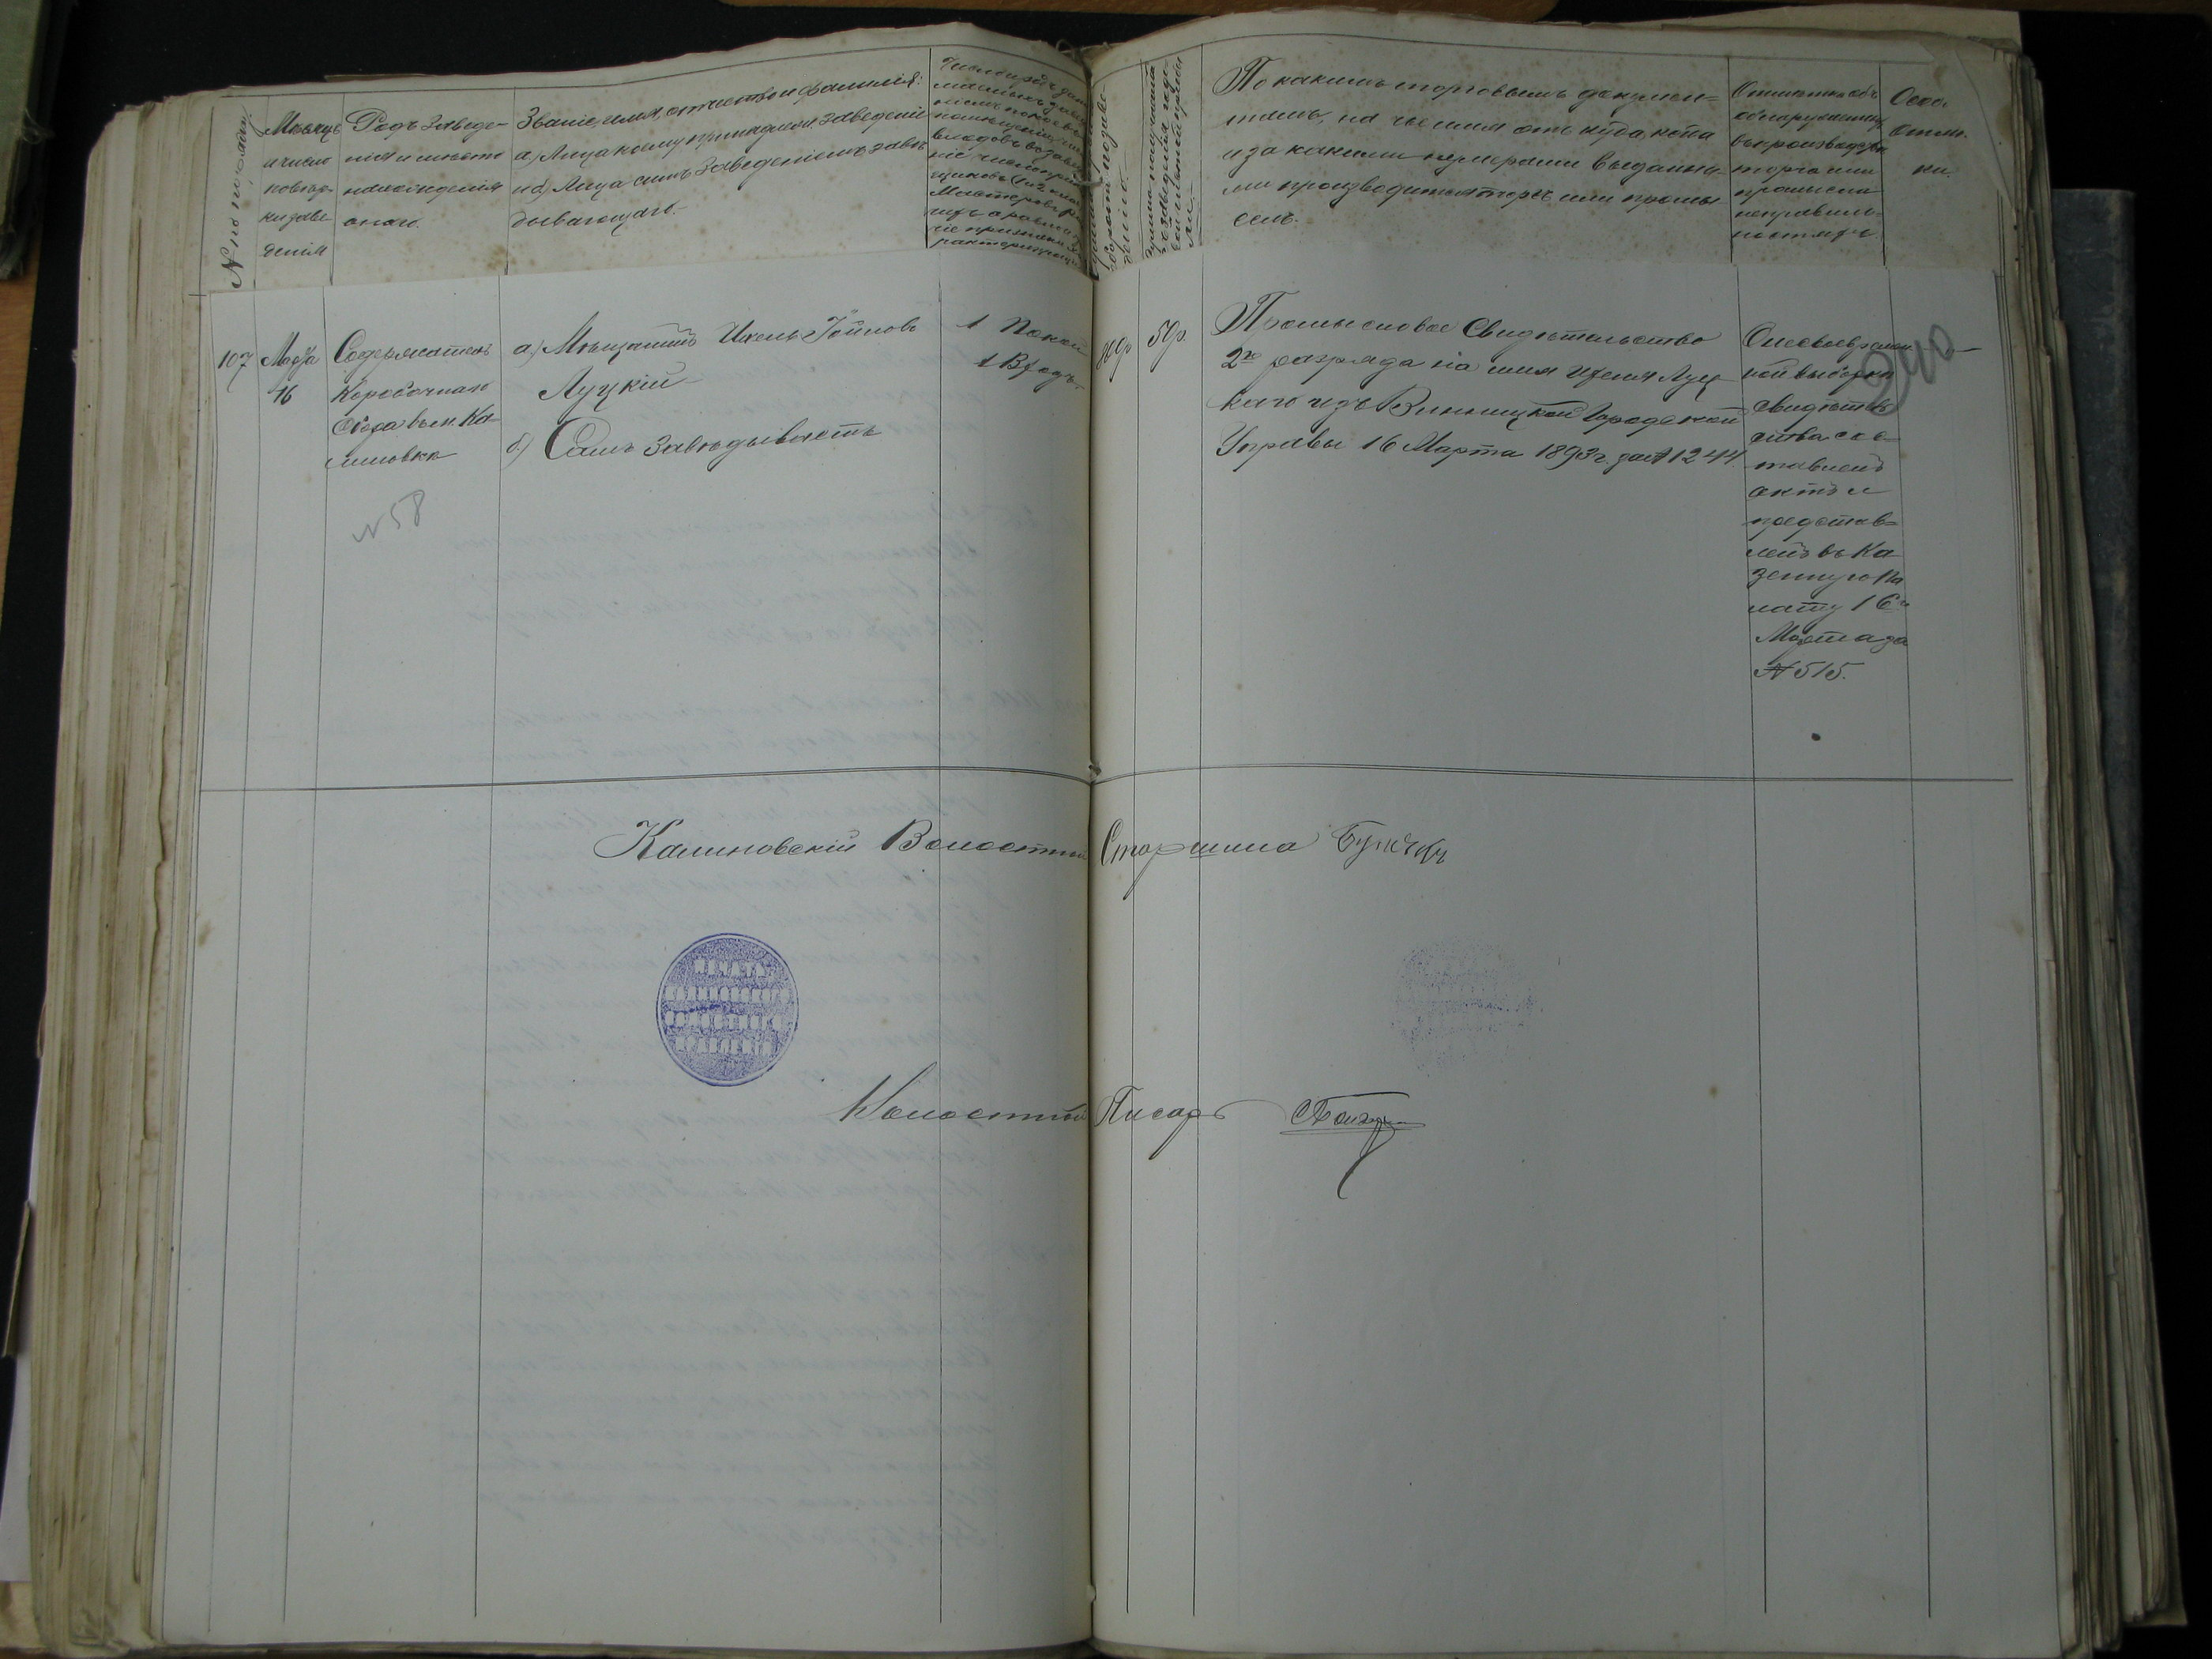 N по порядку
Мѣсяцъ
и число
повѣр-
ки заве
денія
Родъ Заведе-
нія и место
нахожденія
онаго.
Званіе, имя, отчество и фамилія:
а) Лица коему принадлеж. заведеніе
и б) Лица симъ Заведеніемъ завѣ
дывающаго.
По какимъ торговымъ докумен=
тамъ, на чье имя отъ куда, когда
и за какими нумерами выданны-
ми производится торгъ или промы
селъ.
Отмѣтка объ
обнаруженныхъ
въ производствѣ
торга или
промысла
неправиль-
ностяхъ.
Особ.
Отмѣ.
ки.
107
Марта
16
Содержатель
Коробочнаго
Сбора въ м. Ка-
линовкѣ
N 58
а) Мѣщанинъ Ицель Іойловъ
Луцкій
б) Самъ Завѣдываетъ
1 Покой
1 Входъ
50 р
Промысловое Свидѣтельство
2го разряда на имя Ицеля Луц
каго изъ Винницкой Городской
Управы 16 Марта 1893 г. за N 1244
О несвоевремен
ной выборкѣ
свидѣтель
ства сос-
тавленъ
актъ и
представ=
ленъ въ Ка
зенную Па
лату 16го
Марта за
N 515.
240
Калиновскій Волостный Старшина
ПЕЧАТЬ
КАЛИНОВСКАГО
ВОЛОСТНОГО
ПРАВЛЕНІЯ
Волостный Писарь